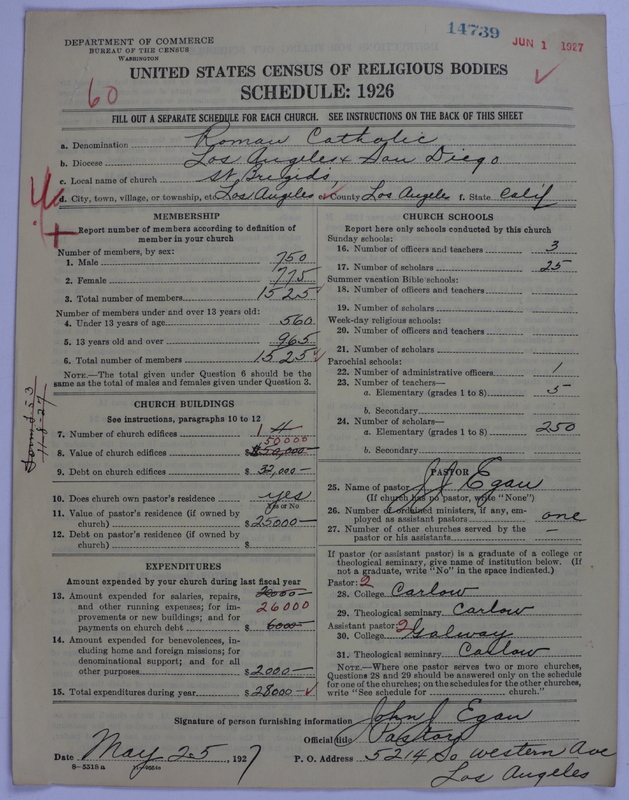 14739
JUN 1 1927
DEPARTMENT OF COMMERCE
BUREAU OF THE CENSUS
WASHINGTON
UNITED STATES CENSUS OF RELIGIOUS BODIES
SCHEDULE: 1926
60
FILL OUT A SEPARATE SCHEDULE FOR EACH CHURCH. SEE INSTRUCTIONS ON THE BACK OF THIS SHEET
a. Denomination Roman Catholic
b. Diocese Los Angeles & San Diego
c. Local name of church St Brigids
d. City, town, village, or township, etc Los Angeles e. County Los Angeles f. State Calif
MEMBERSHIP
Report number of members according to definition of
member in your church
Number of members, by sex:
1. Male 750
2. Female 775
3. Total number of members 1525
Number of members under and over 13 years old:
4. Under 13 years of age 560
5. 13 years old and over 965
6. Total number of members 1525
NOTE.—The total given under Question 6 should be
same as the total of males and females given under Question 3.
CHURCH BUILDINGS
See instructions, paragraphs 10 to 12
7. Number of church edifices 1 4
50000
8. Value of church edifices $50,000—
9. Debt on church edifices $32,000—
10. Does church own pastor's residence yes
Yes or No
11. Value of pastor's residence (if owned by
church) $25000—
12. Debt on pastor's residence (if owned by
church) $
EXPENDITURES
Amount expended by your church during last fiscal year
13. Amount expended for salaries, repairs,
and other running expenses; for im- 26000
provements or new buildings; and for
payments on church debt $6000—
14. Amount expended for benevolences, in-
cluding home and foreign missions; for
denominational support; and for all
other purposes $2000—
15. Total expenditures during year $28000—
CHURCH SCHOOLS
Report here only schools conducted by this church
Sunday schools:
16. Number of officers and teachers 3
17. Number of scholars 25
Summer vacation Bible schools:
18. Number of officers and teachers
19. Number of scholars
Week-day religious schools:
20. Number of officers and teachers
21. Number of scholars
Parochial schools:
22. Number of administrative officers 1
23. Number of teachers—
a. Elementary (grades 1 to 8) 5
b. Secondary
24. Number of scholars—
a. Elementary (grades 1 to 8) 250
b. Secondary
PASTOR
25. Name of pastor J J Egan
(If church has no pastor, write "None")
26. Number of ordained ministers, if any, em-
ployed as assistant pastors one
27. Number of other churches served by the
pastor or his assistants —
If pastor (or assistant pastor) is a graduate of a college or
theological seminary, give name of institution below. (If
not a graduate, write "No" in the space indicated.)
Pastor: 2
28. College Carlow
29. Theological seminary Carlow
Assistant pastor: 2
30. College Galway
31. Theological seminary Carlow
NOTE.—Where one pastor serves two or more churches,
Questions 28 and 29 should be answered only on the schedule
for one of the churches; on the schedules for the other churches,
write "See schedule for church."
Signature of person furnishing information John J Egan
Official title Pastor
Date May 25, 1927
P. O. Address 5214 So Western Ave
Los Angeles
8-5318 a